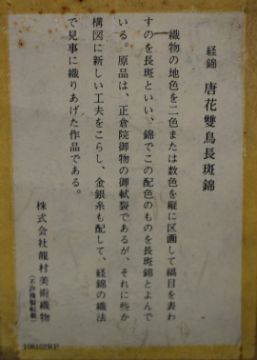 経錦　唐花雙鳥長斑錦
織物の地色を二色または数色を縦に区画して縞目を表わ
すのを長斑といい、錦でこの配色のものを長斑錦とよんで
いる。原品は、正倉院御物の御軾裂であるが、それに些か
構図に新しい工夫をこらし、金銀糸も配して、経錦の織法
で見事に織りあげた作品である。
株式会社龍村美術織物
(不許複製転載)